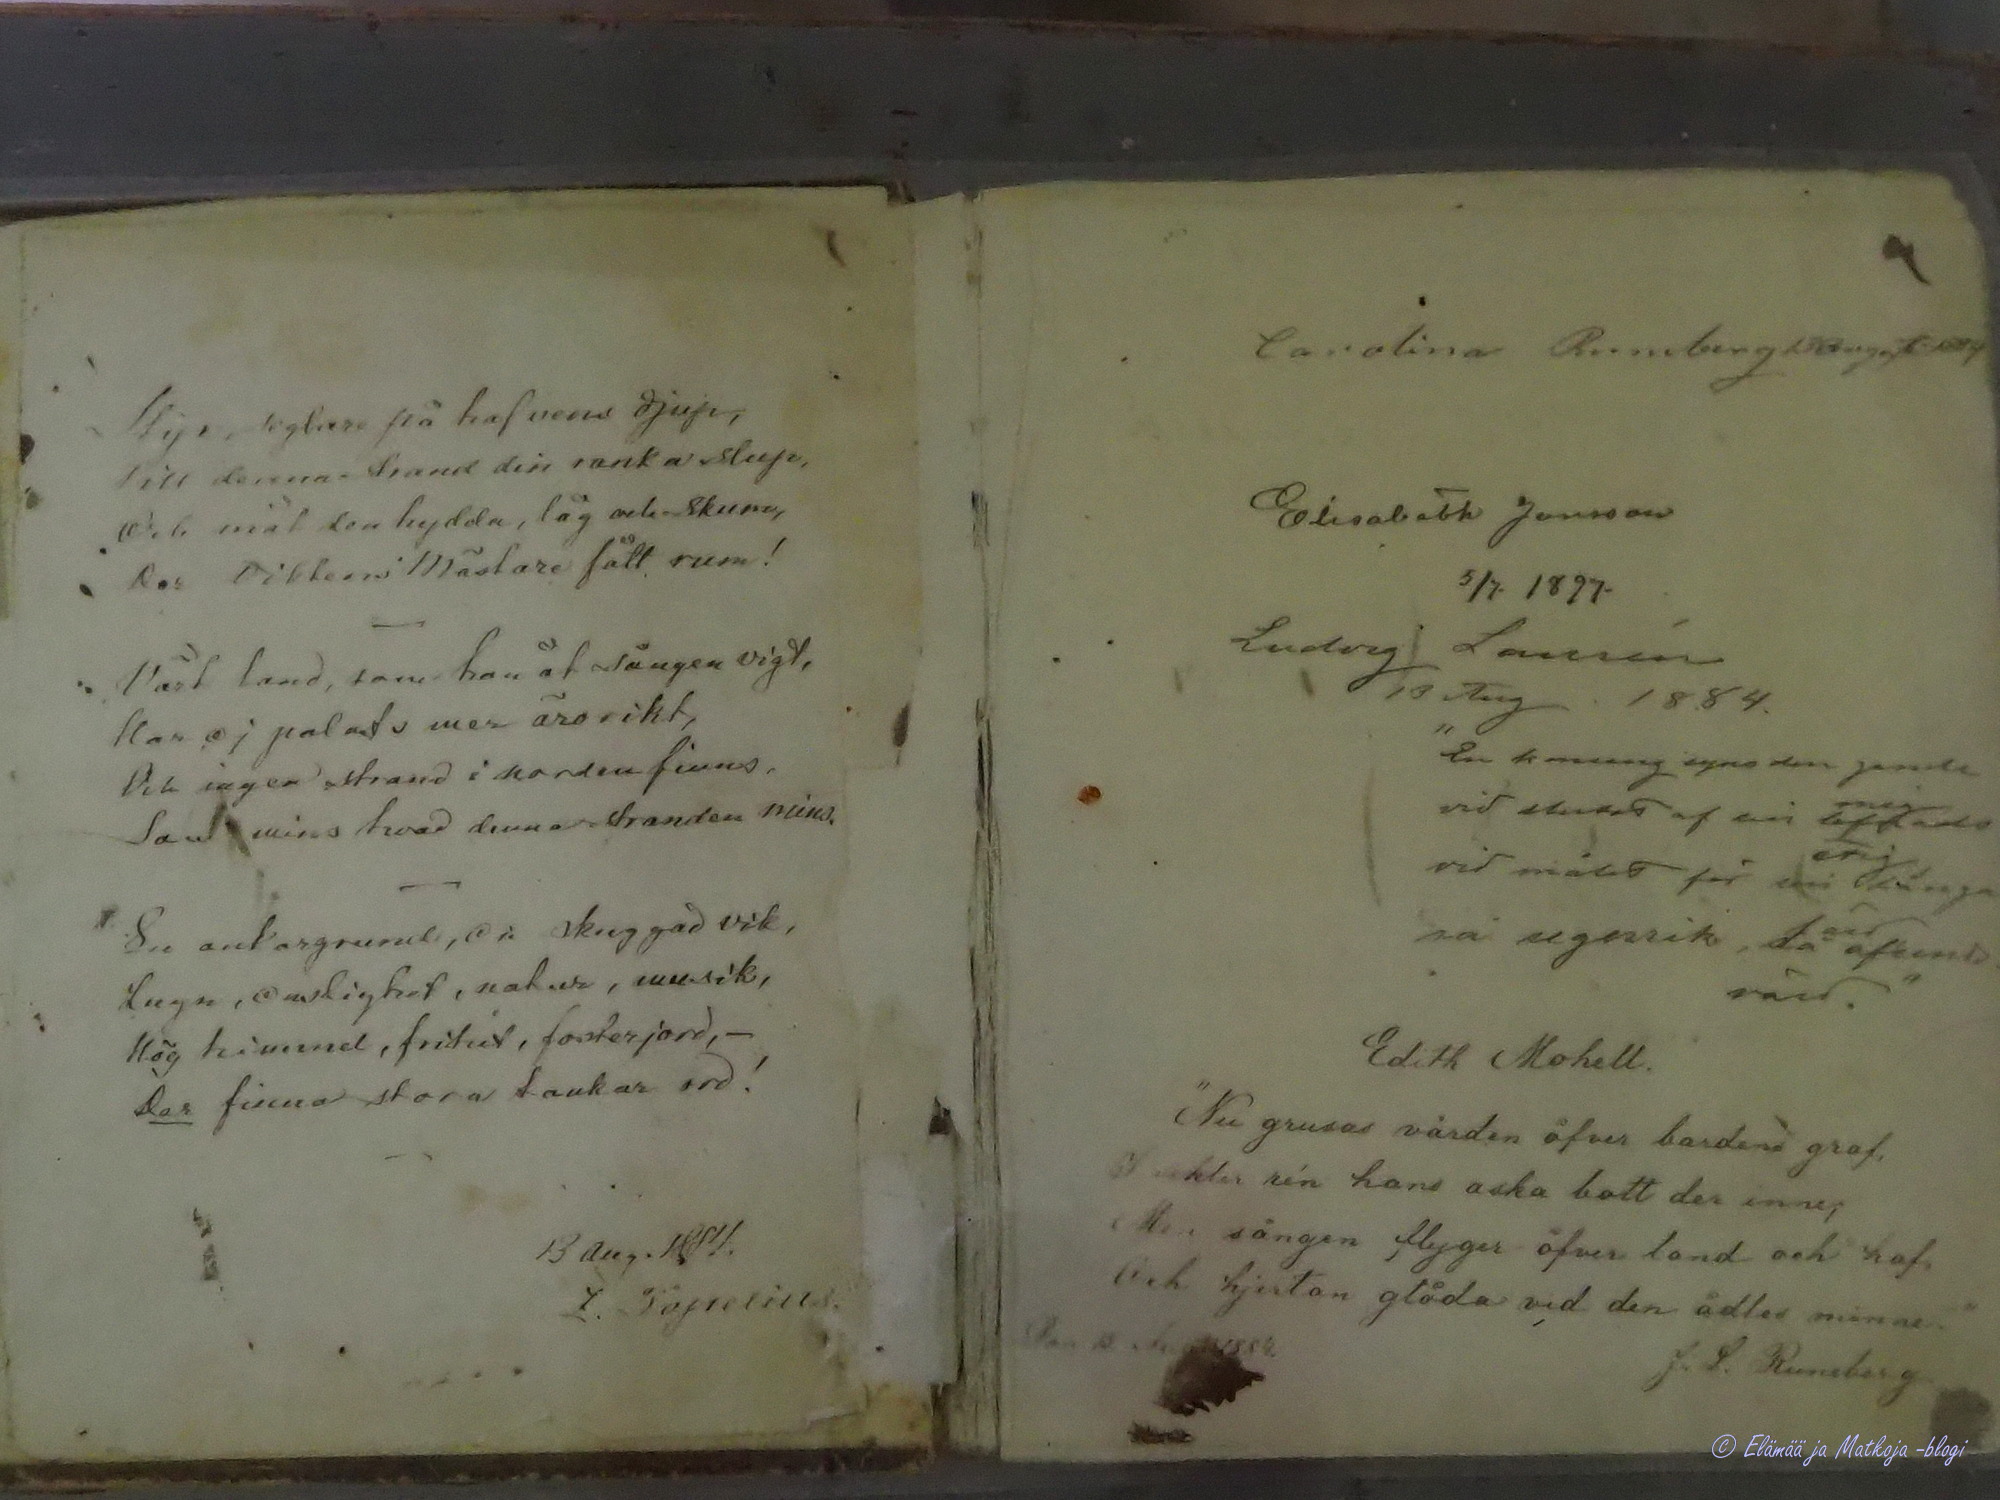 Styr, seglare på hafvens djup,
Till denna strand din ranka slup,
Och mät den hydda, låg och skum,
Der Diktens Mästare fått rum!
Vårt land, som han åt sången vigt,
Har ej palats mer ärorikt,
Och ingen strand i norden finns,
Som mins hvad denna stranden mins.
En ankargrund, en skuggad vik,
Lugn, enslighet, natur, musik,
Hög himmel, frihet, fosterjord, —
Der finna stora tankar ord!
13 Aug. 1884.
Z. Topelius.
Carolina Runeberg 13 Augusti 1884
Elisabeth Jonsson
5/7. 1897.
Ludvig Laurén
13 Aug. 1884.
"En konung syns den
vid slutet af sin
vid målet för sin
så segerrik, så afund
värd."
Edith Mohell.
"Nu grusas vården öfver bardens graf,
ren hans aska bott der inne,
Men sången flyger öfver land och haf,
Och hjertan glöda vid den ädles minne."
Den 13 Aug. 1884.
J. L. Runeberg
© Elämää ja Matkoja -blogi